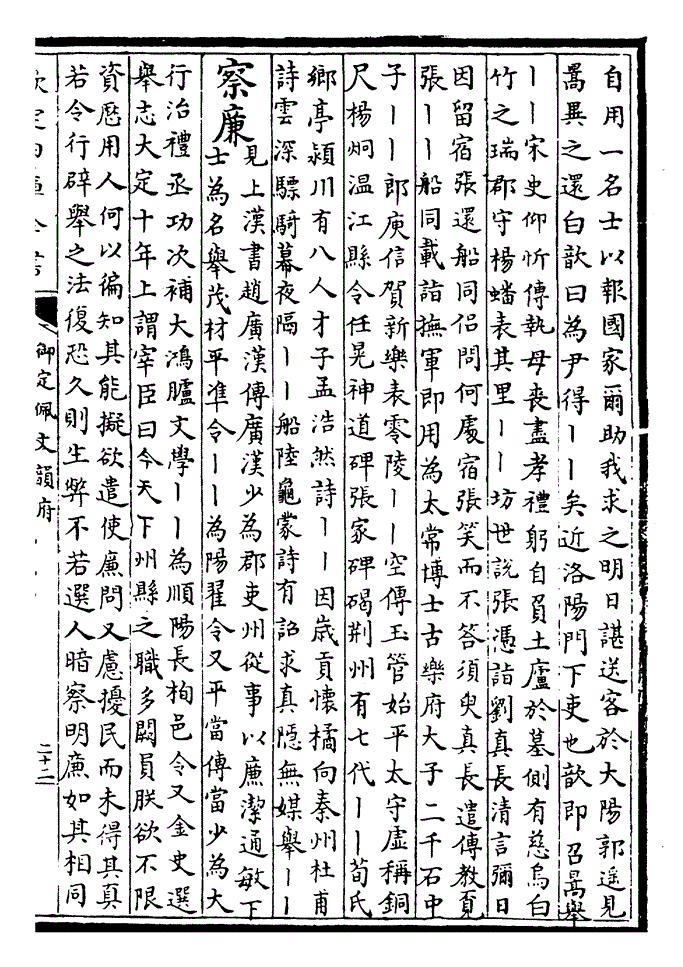 自用一名士以報國家爾助我求之明日諶送客於大陽郭遥見
暠異之還白歆曰為尹得丨丨矣近洛陽門下吏也歆即召暠舉
丨丨宋史仰忻傳執母喪盡孝禮躬自負土廬於墓側有慈烏白
竹之瑞郡守楊蟠表其里丨丨坊世說張憑詣劉真長清言彌日
因留宿張還船同侣問何處宿張笑而不答須臾真長遣傳教覔
張丨丨船同載詣撫軍即用為太常博士古樂府大子二千石中
子丨丨郎庾信賀新樂表零陵丨丨空傳玉管始平太守虚稱銅
尺楊炯温江縣令任晃神道碑張家碑碣荆州有七代丨丨荀氏
鄉亭潁川有八人才子孟浩然詩丨丨因歳貢懷橘向秦州杜甫
詩雲深驃騎幕夜隔丨丨船陸龜蒙詩有詔求真隠無媒舉丨丨
察廉
見上漢書趙廣漢傳廣漢少為郡吏州從事以廉潔通敏下
士為名舉茂材平凖令丨丨為陽翟令又平當傳當少為大
行治禮丞功次補大鴻臚文學丨丨為順陽長栒邑令又金史選
舉志大定十年上謂宰臣曰今天下州縣之職多闕員朕欲不限
資歴用人何以徧知其能擬欲遣使廉問又慮擾民而未得其真
若令行辟舉之法復恐久則生弊不若選人暗察明廉如其相同
欽定四庫全書
御定佩文韻府
二十二